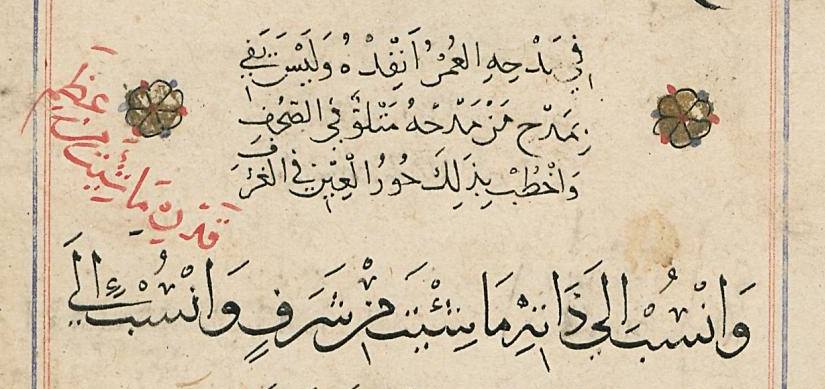 فِي مَدْحِهِ العُمْرُ اَنْفِدْهُ وَلَيْسَ يَفِي
بِمَدْحِ مَنْ مَدْحُهُ مَتْلُوٌّ فِي الصُّحُفِ
وَاخْطُبْ بِذَلِكَ حُورُ الْعِيْنِ فِي الْغُرَفِ
وَانْسُبْ اِلَى ذَاتِهِ مَا شِئْتَ مِنْ شَرَفٍ وَانْسُبْ اِلَى
قَدْرِهِ مَا شِئْتَ مِنْ عِظَمِ